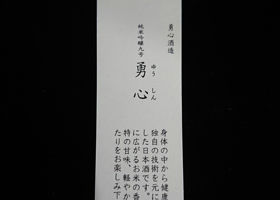 勇心酒造
純米吟醸九号
ゆうしん
勇心
身体の中から健康
独自の技術を元に
した日本酒です。
に広がるお米の香
特の甘味、軽やか
たりをお楽しみ下